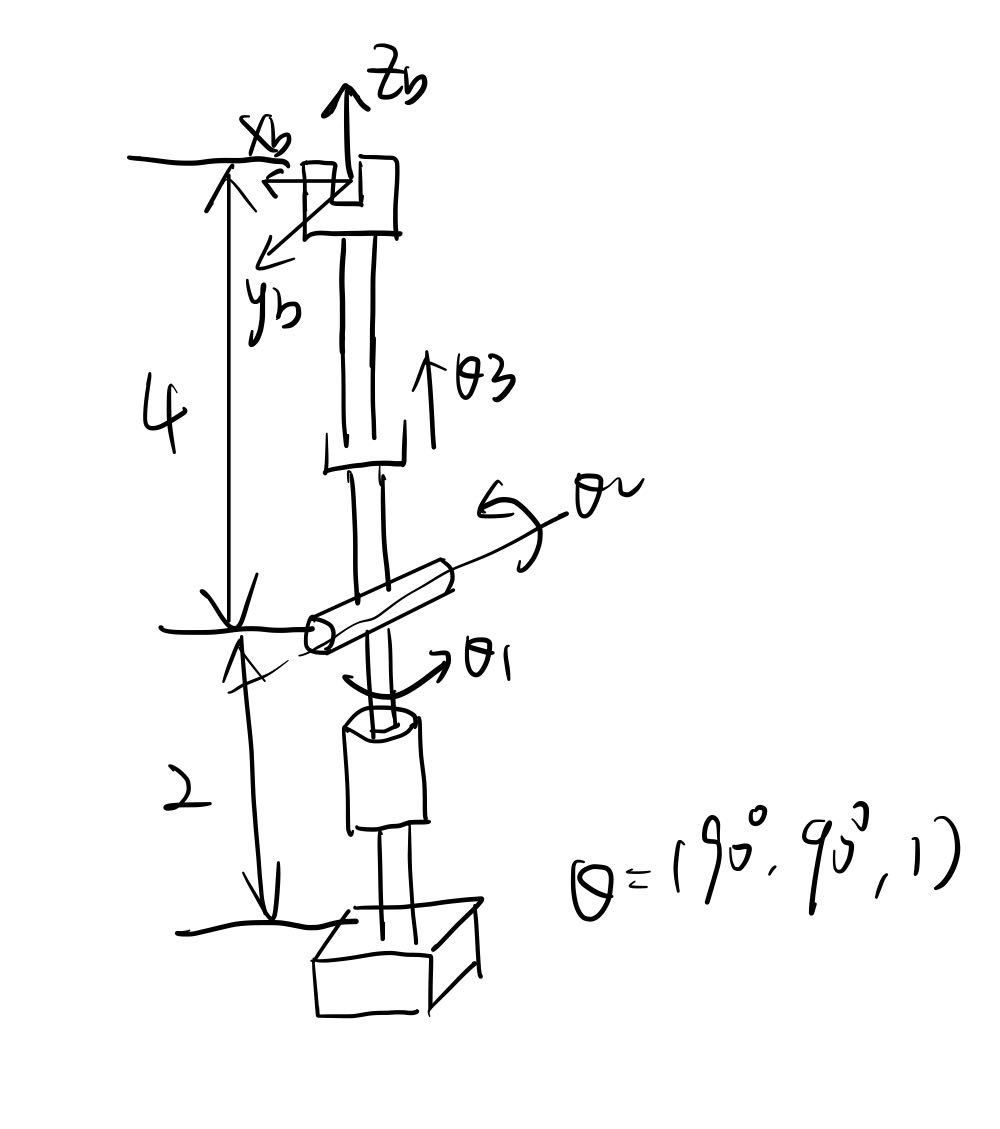 Zb
Xb
yb
4
θ3
θ2
θ1
2
θ = (90°, 90°, 1)